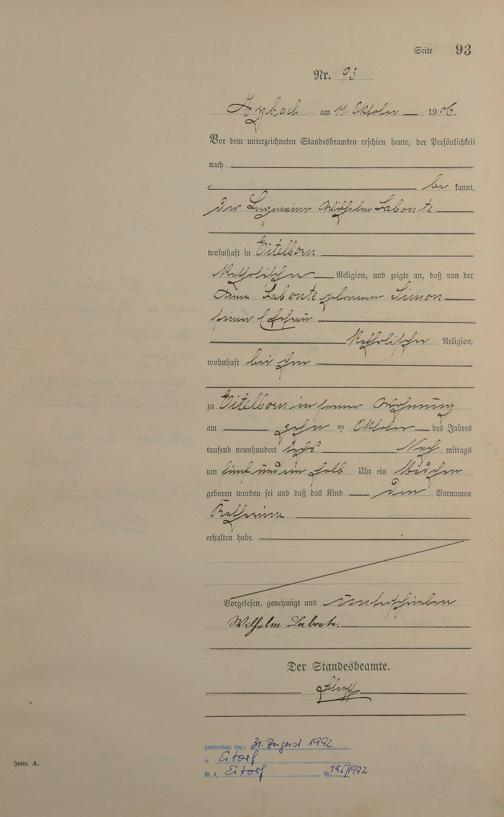 Seite 93
Nr. 93
Arzbach am 11. Oktober 1906.
Vor dem unterzeichneten Standesbeamten erschien heute, der Persönlichkeit
nach
be kannt,
der Wilhelm Labonte
wohnhaft in Eitelborn
katholischer Religion, und zeigte an, daß von der
Labonte geborenen Simon
seiner Ehefrau
katholischer Religion,
wohnhaft bei ihm
zu Eitelborn in seiner Wohnung
am zehnten Oktober des Jahres
tausend neunhundert sechs Nach mittags
um fünf und ein halb Uhr ein Mädchen
geboren worden sei und daß das Kind den Vornamen
Katharina
erhalten habe.
Vorgelesen, genehmigt und unterschrieben
Wilhelm Labonte.
Der Standesbeamte.
gestorben am: 31. August 1992
in Eitorf
St. A. Eitorf Nr. 195/1992
Form. A.